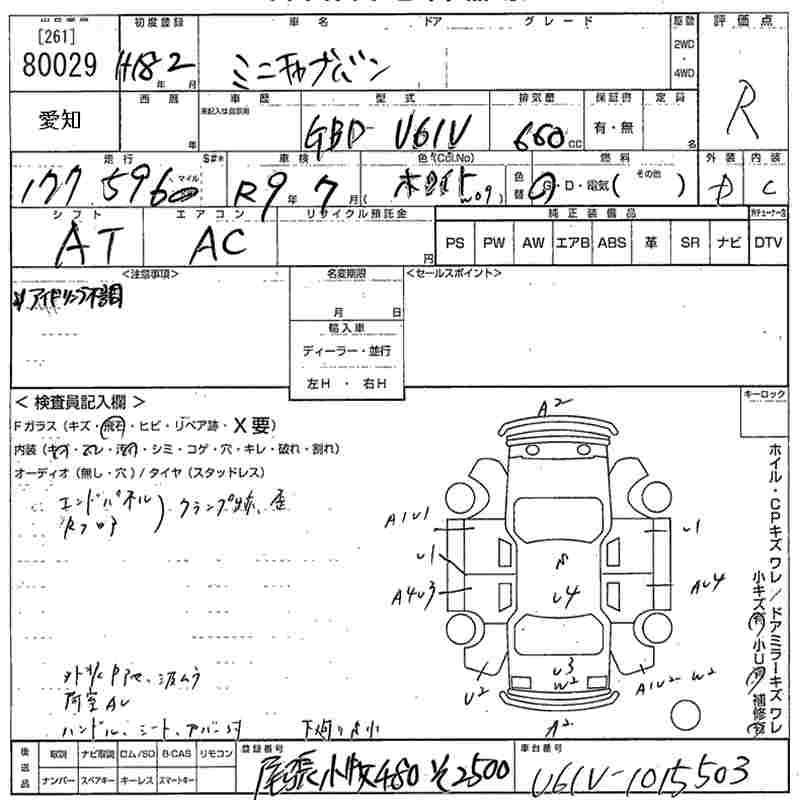 出品番号 初度登録 車名 ドア グレード 駆動 評価点
[261]
80029 H18年2月 ミニキャブバン 2WD・4WD R
愛知 西暦 車歴 型式 排気量 保証書 定員
未記入は自家用
年 GBD-U61V 660cc 有・無 名
走行 S#* 車検 色(Col.No) 燃料 外装 内装
177,596 マイル R9年7月( ホワイト W09) 色替 G・D・電気( その他 ) D C
シフト エアコン リサイクル預託金 純正装備品
AT AC 円 PS PW AW エアB ABS 革 SR ナビ DTV
<注意事項> 名変期限 <セールスポイント>
※アイドリング不調
月 日
輸入車
ディーラー・並行
左H・右H
< 検査員記入欄 > キーロック
Fガラス(キズ・飛石・ヒビ・リペア跡・X要)
内装(キズ・スレ・汚れ・シミ・コゲ・穴・キレ・破れ・割れ)
オーディオ(無し・穴)/タイヤ(スタッドレス)
エンドパネル
Rフロア ) クランプ跡、歪
A2
A1U1 U1
U1
A4U3 U4 AU4
U3
W2
U2 A1U2-W2
A2
ホイル・CPキズワレ/ドアミラーキズワレ
小キズ有 小U有 補修有
荷室AU
ハンドル、シート、
後送品 取説 ナビ取説 ロム/SD B-CAS リモコン 登録番号 車台番号
ナンバー スペアキー キーレス スマートキー 尾張小牧480 そ2500 U61V-1015503